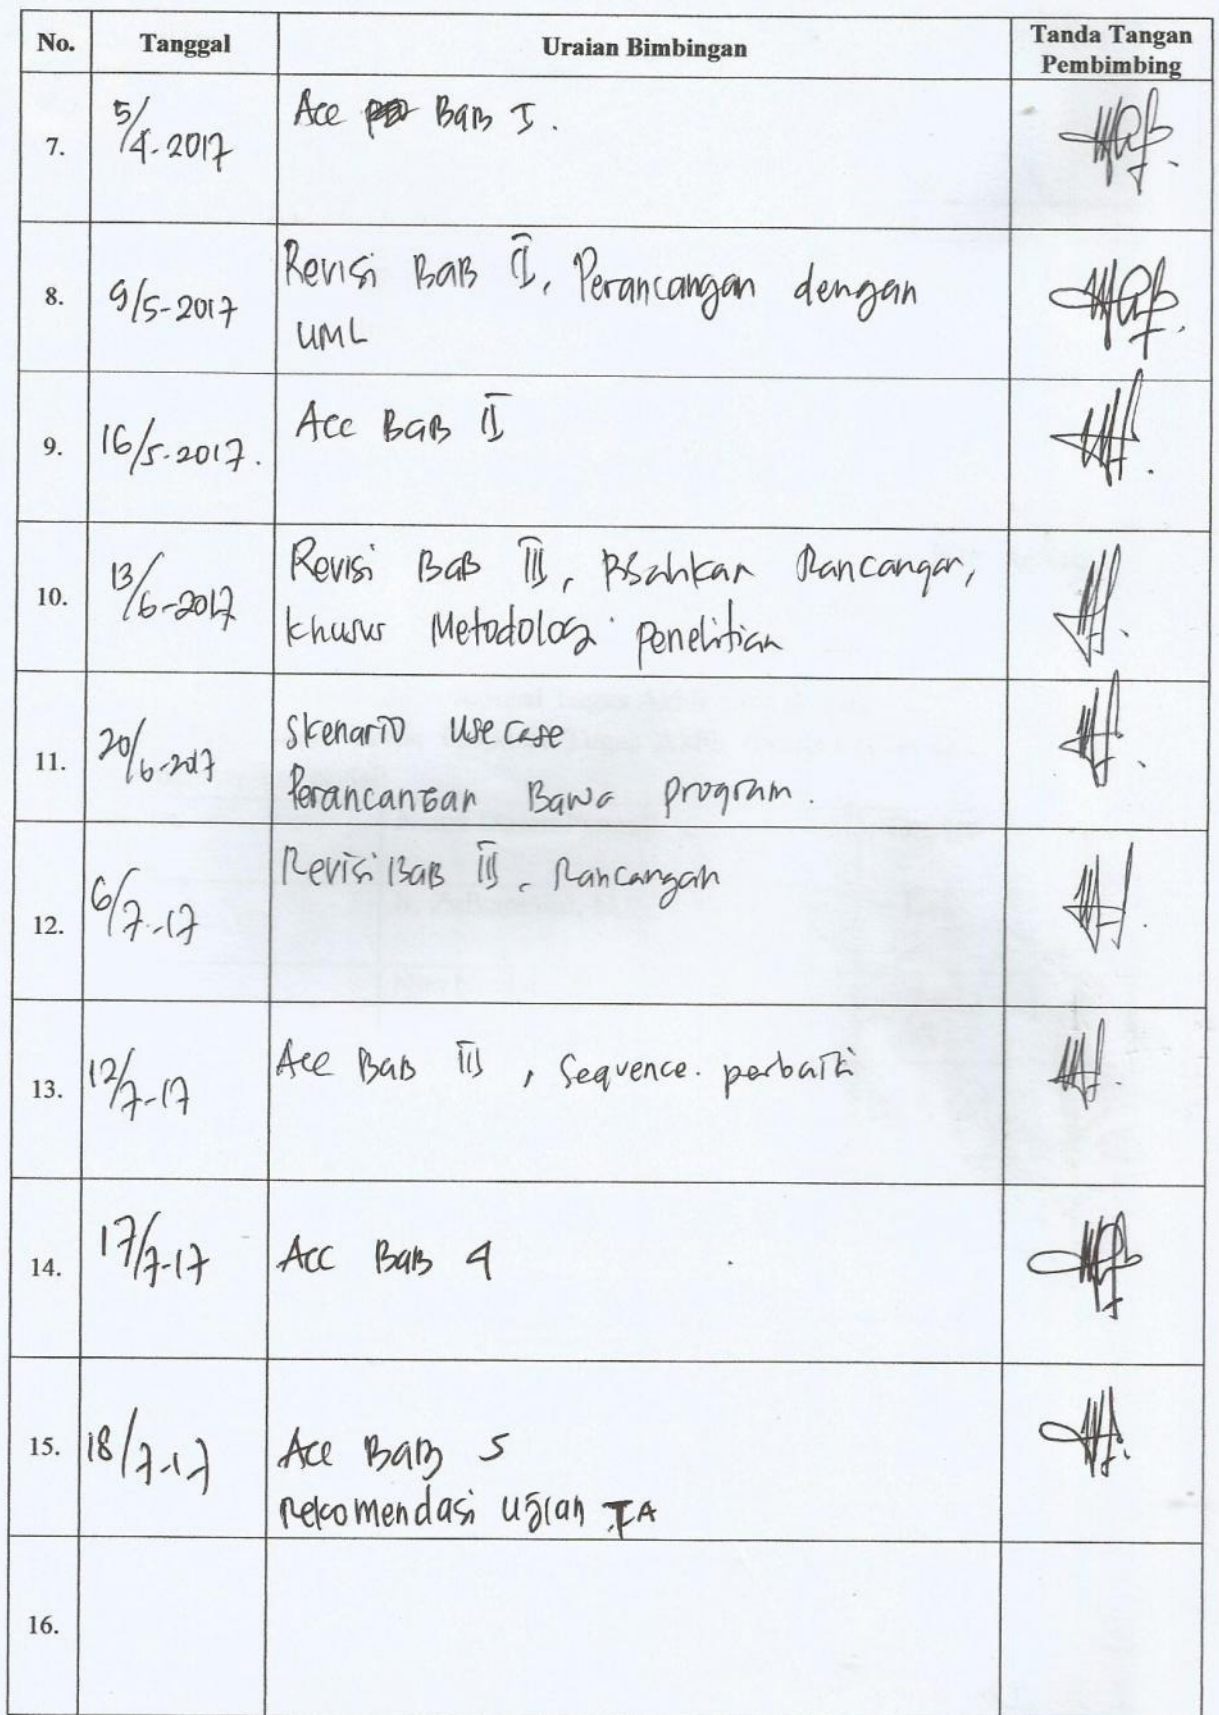 No. Tanggal Uraian Bimbingan Tanda Tangan Pembimbing
7. 5/4-2017 Acc Bab I.
8. 9/5-2017 Revisi Bab II, Perancangan dengan
UML
9. 16/5-2017. Acc Bab II
10. 13/6-2017 Revisi Bab III, Pisahkan Rancangan,
khusus Metodologi penelitian
11. 20/6-2017 Skenario Use Case
Perancangan program.
12. 6/7-17 Revisi Bab III, Rancangan
13. 12/7-17 Acc Bab III, Sequence. perbaiki
14. 17/7-17 Acc Bab 4
15. 18/7-17 Acc Bab 5
rekomendasi ujian TA
16.